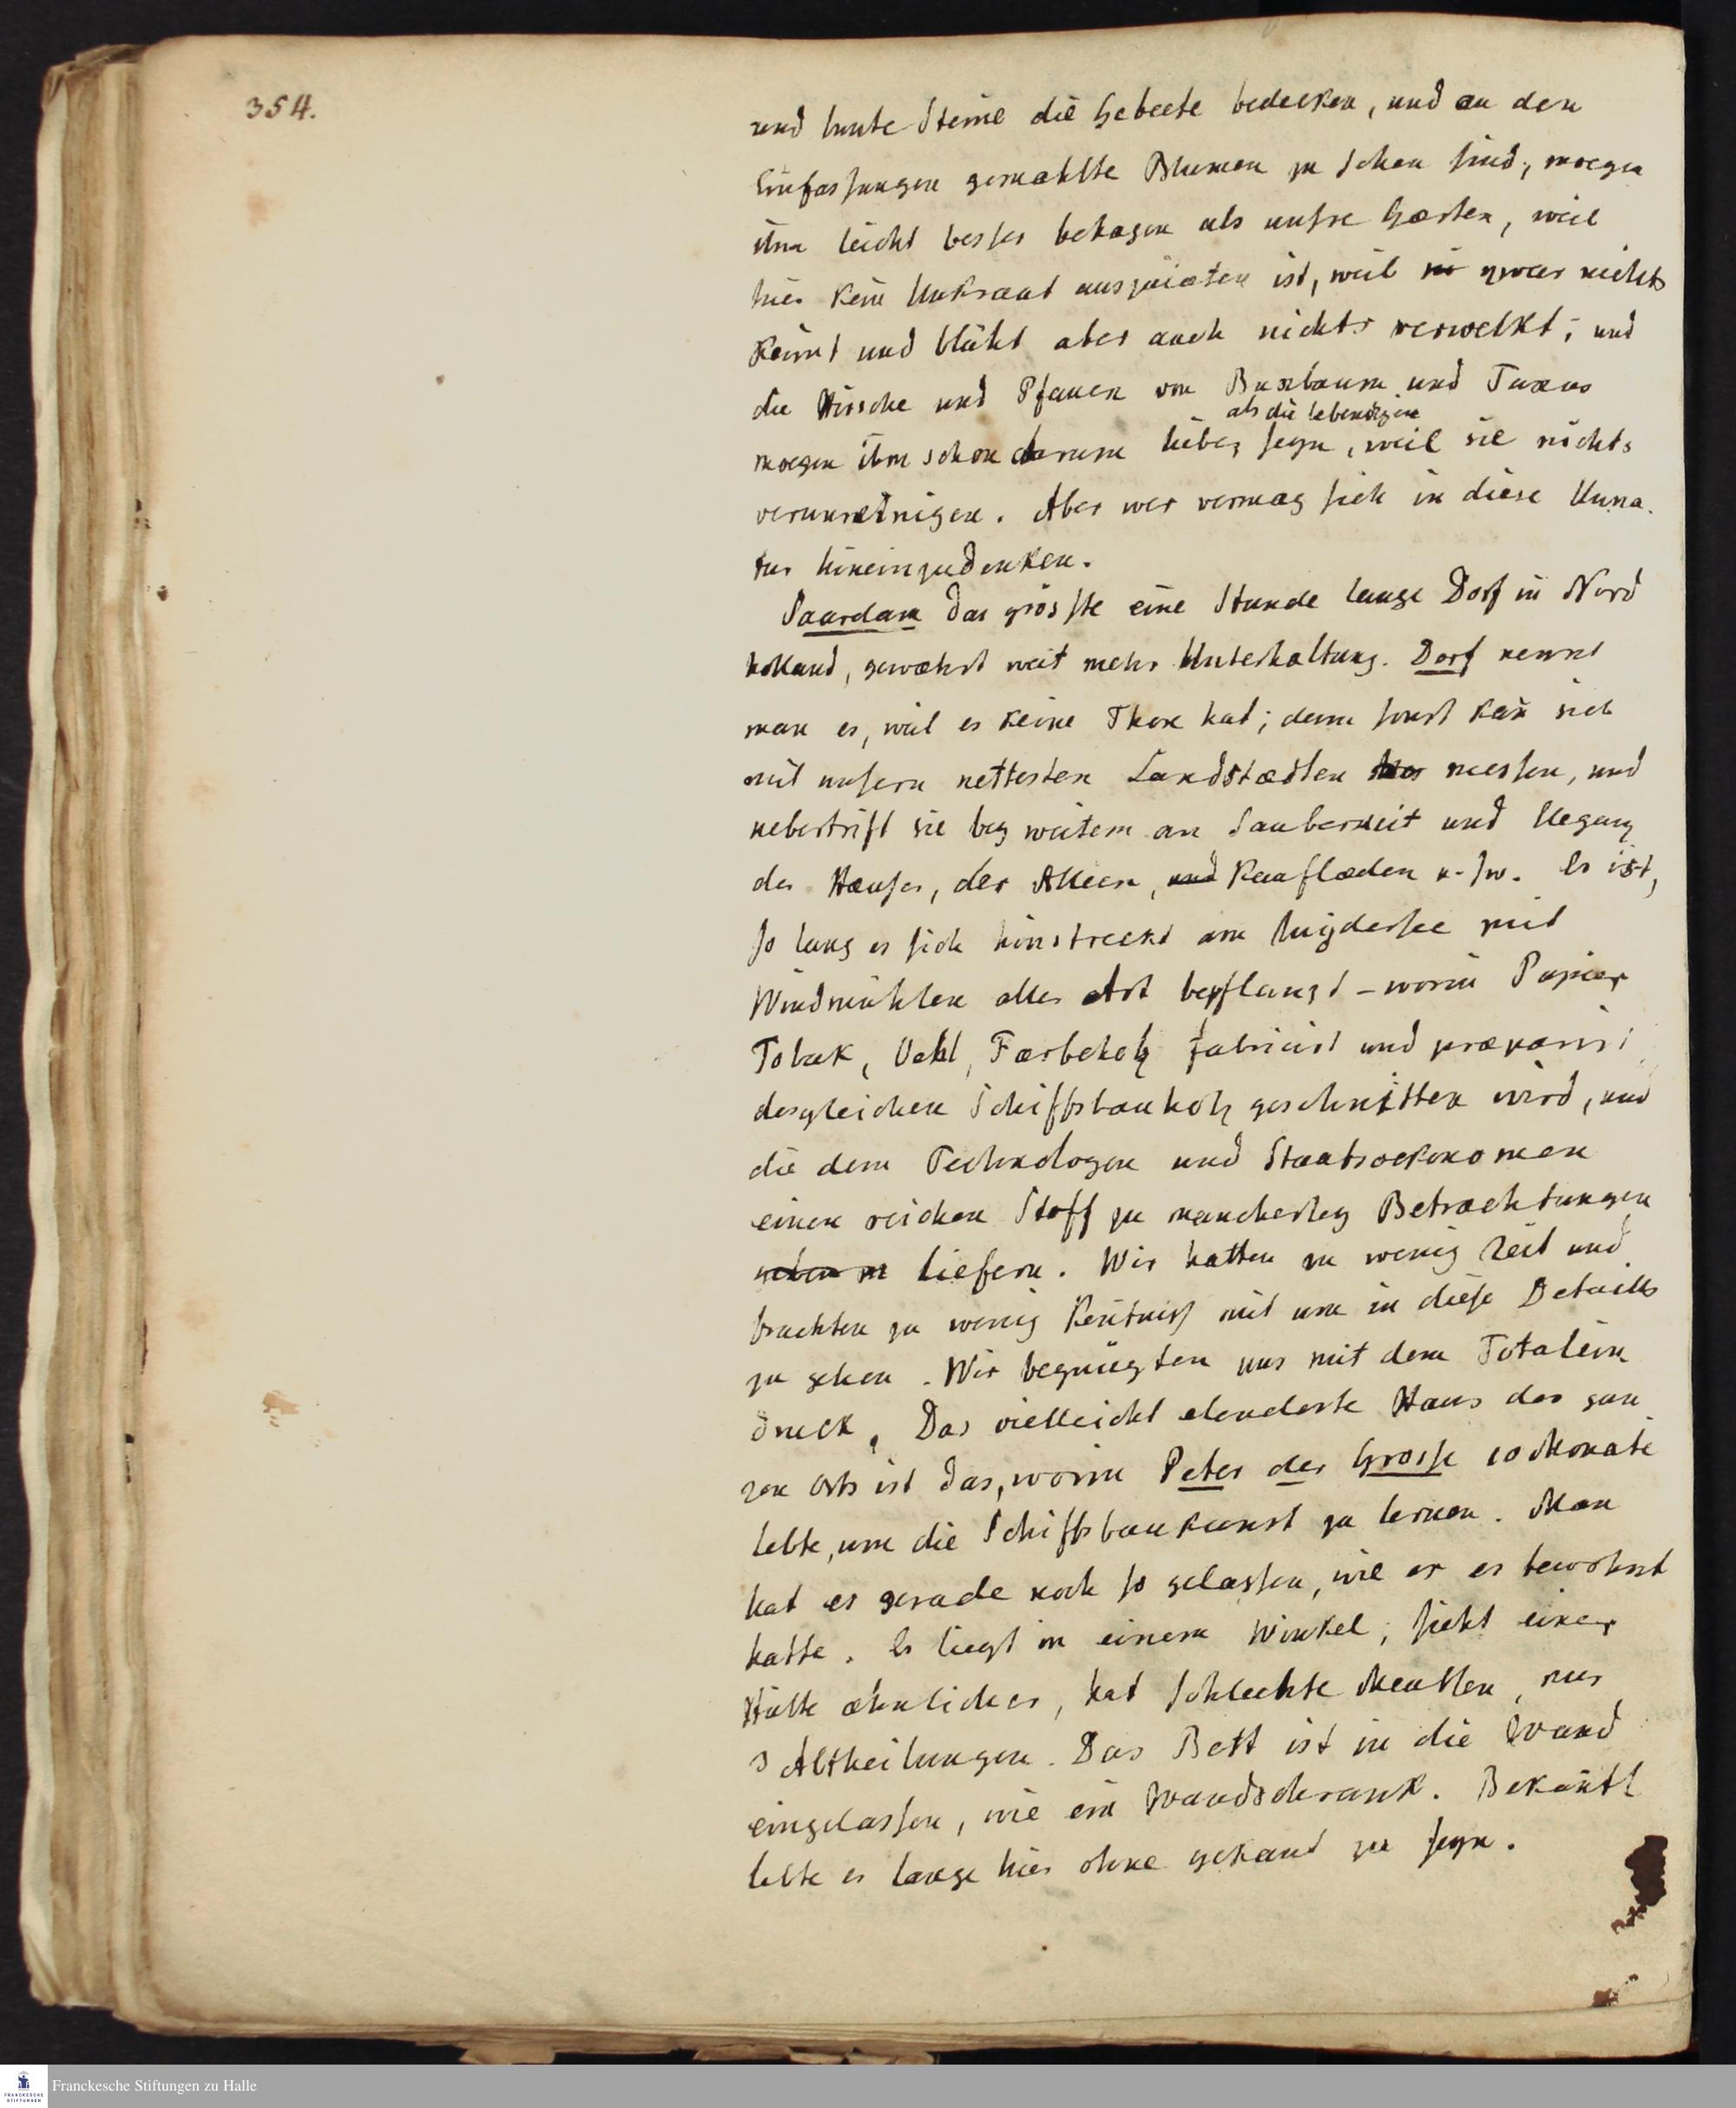 354.
und bunte Steine die Gebeete bedecken, und an den
Einfassungen gemahlte Blumen zu sehen sind, moegen
ihm leicht besser behagen als unsre Gærten, weil
hier kein Unkraut auszujæten ist, weil zwar nichts
keimt und blüht aber auch nichts verwelkt; und
die Hirsche und Pfauen von Buxbaum und Taxus
als die lebendigen
moegen ihm schon darum lieber seyn, weil sie nichts
verunreinigen. Aber wer vermag sich in diese Unna-
tur hineinzudenken.
Saardam das grösste eine Stunde lange Dorf in Nord
holland, gewæhrt weit mehr Unterhaltung. Dorf nennt
man es, weil es keine Thore hat; denn sonst kañ sich
mit unsern nettesten Landstædten messen, und
uebertrift sie bey weitem an Sauberkeit und Eleganz
der Hæuser, der Alleen, und Kauflæden u.sw. Es ist,
so lang es sich hinstreckt am Zuydersee mit
Windmühlen aller Art bepflanzt – worin Papier
Toback, Oehl, Færbeholz fabricirt und præparirt
desgleichen Schiffsbauholz geschnitten wird, und
die dem Technologen und Staatsoekonomen
einen reichen Stoff zu mancherley Betrachtungen
liefern. Wir hatten zu wenig Zeit und
brachten zu wenig Keñtniss mit um in diese Details
zu gehen. Wir begnügten uns mit dem Totalein
druck. Das vielleicht elendeste Haus des gan
zen Orts ist das, worin Peter der Grosse 10 Monate
lebte, um die Schiffsbaukunst zu lernen. Man
hat es gerade noch so gelassen, wie er es bewohnt
hatte. Es liegt in einem Winkel, sieht einer
Hütte æhnlicher, hat schlechte Meublen, nur
3 Abtheilungen. Das Bett ist in die Wand
eingelassen, wie ein Wandschrank. Bekañtl
lebte er lange hier ohne gekannt zu seyn.
Franckesche Stiftungen zu Halle
FRANCKESCHE
STIFTUNGEN